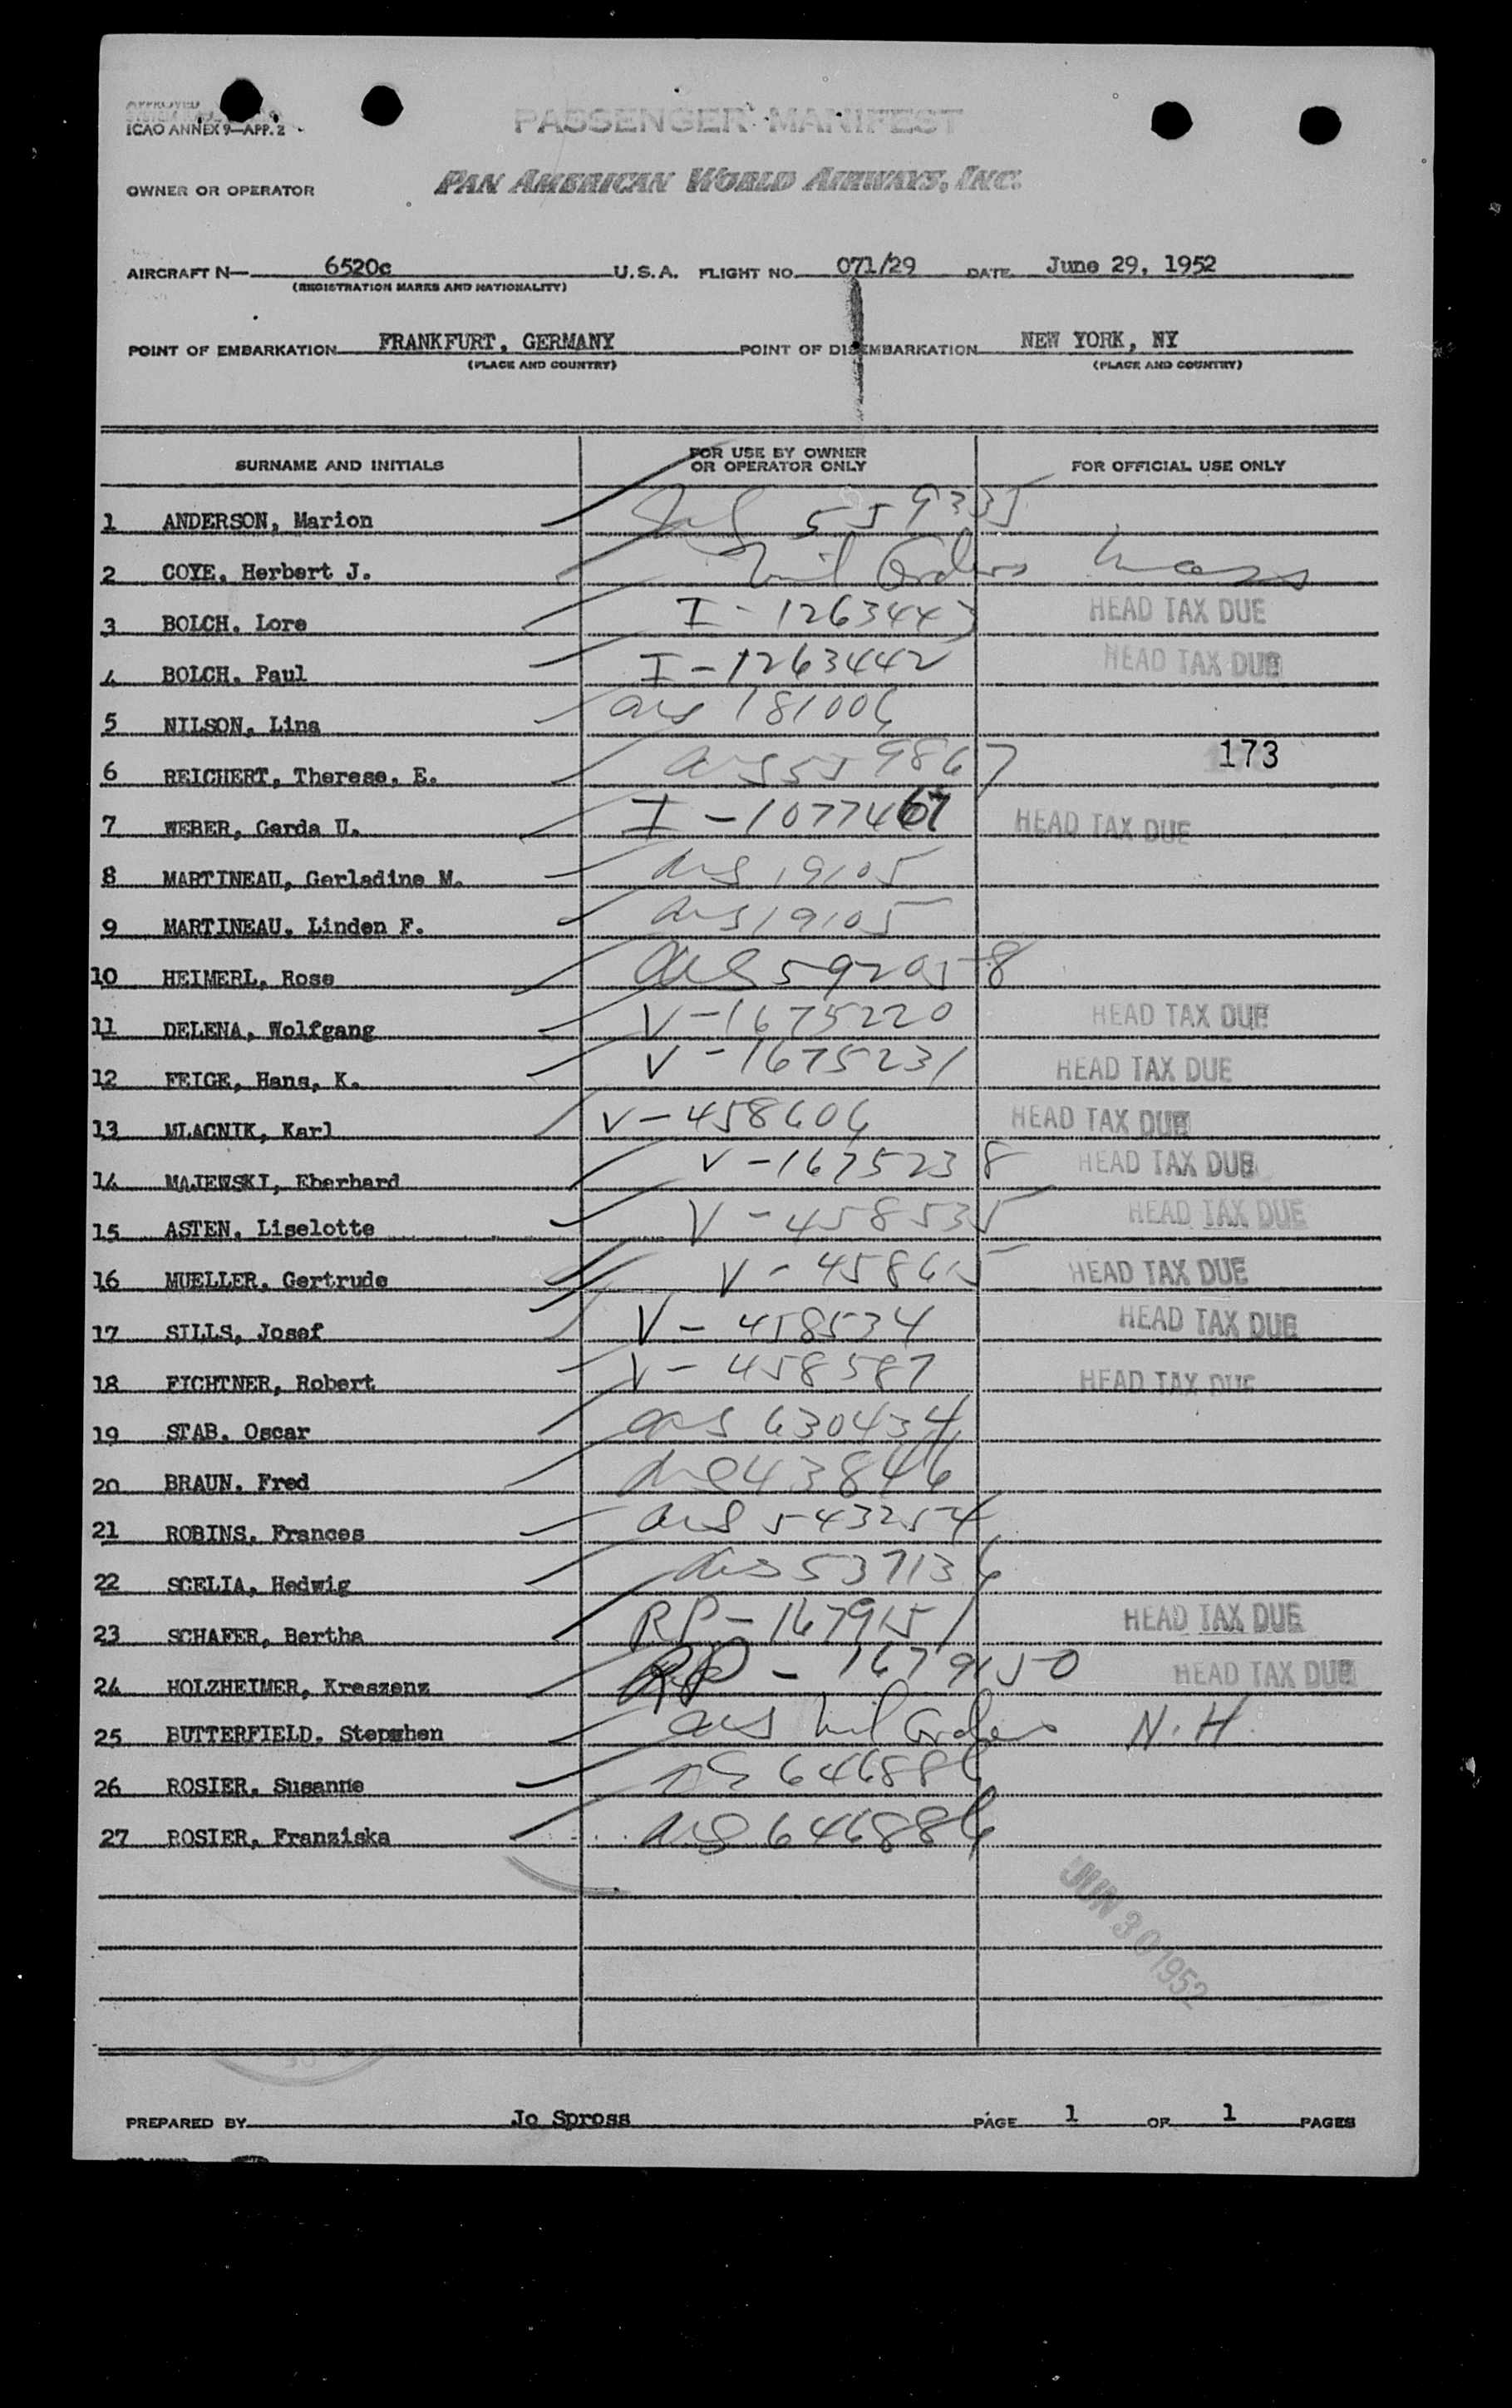 APPROVED
ICAO ANNEX 9—APP. 2
PASSENGER MANIFEST
OWNER OR OPERATOR PAN AMERICAN WORLD AIRWAYS, INC.
AIRCRAFT N— 6520c U.S.A. FLIGHT NO. 071/29 DATE June 29, 1952
(REGISTRATION MARKS AND NATIONALITY)
POINT OF EMBARKATION FRANKFURT, GERMANY POINT OF DISEMBARKATION NEW YORK, NY
(PLACE AND COUNTRY) (PLACE AND COUNTRY)
SURNAME AND INITIALS FOR USE BY OWNER OR OPERATOR ONLY FOR OFFICIAL USE ONLY
1 ANDERSON, Marion 559335
2 COYE, Herbert J. Mil Orders Mass
3 BOLCH, Lore I-1263443 HEAD TAX DUE
4 BOLCH, Paul I-1263442 HEAD TAX DUE
5 NILSON, Lina 181006
6 REICHERT, Therese, E. 559867 173
7 WEBER, Gerda U. I-1077467 HEAD TAX DUE
8 MARTINEAU, Gerladine M. 19105
9 MARTINEAU, Linden F. 19105
10 HEIMERL, Rose 592058
11 DELENA, Wolfgang V-1675220 HEAD TAX DUE
12 FEIGE, Hans, K. V-1675231 HEAD TAX DUE
13 MLACNIK, Karl V-458606 HEAD TAX DUE
14 MAJEWSKI, Eberhard V-1675238 HEAD TAX DUE
15 ASTEN, Liselotte V-458535 HEAD TAX DUE
16 MUELLER, Gertrude V-458615 HEAD TAX DUE
17 SILLS, Josef V-458534 HEAD TAX DUE
18 FICHTNER, Robert V-458587 HEAD TAX DUE
19 STAB, Oscar 630434
20 BRAUN, Fred 43846
21 ROBINS, Frances 543254
22 SCELIA, Hedwig 537136
23 SCHAFER, Bertha RP-1679151 HEAD TAX DUE
24 HOLZHEIMER, Kreszenz RP-1679150 HEAD TAX DUE
25 BUTTERFIELD, Stepxhen Mil Orders N.H.
26 ROSIER, Susanne 646886
27 ROSIER, Franziska 646886
JUN 30 1952
PREPARED BY Jo Spross PAGE 1 OF 1 PAGES